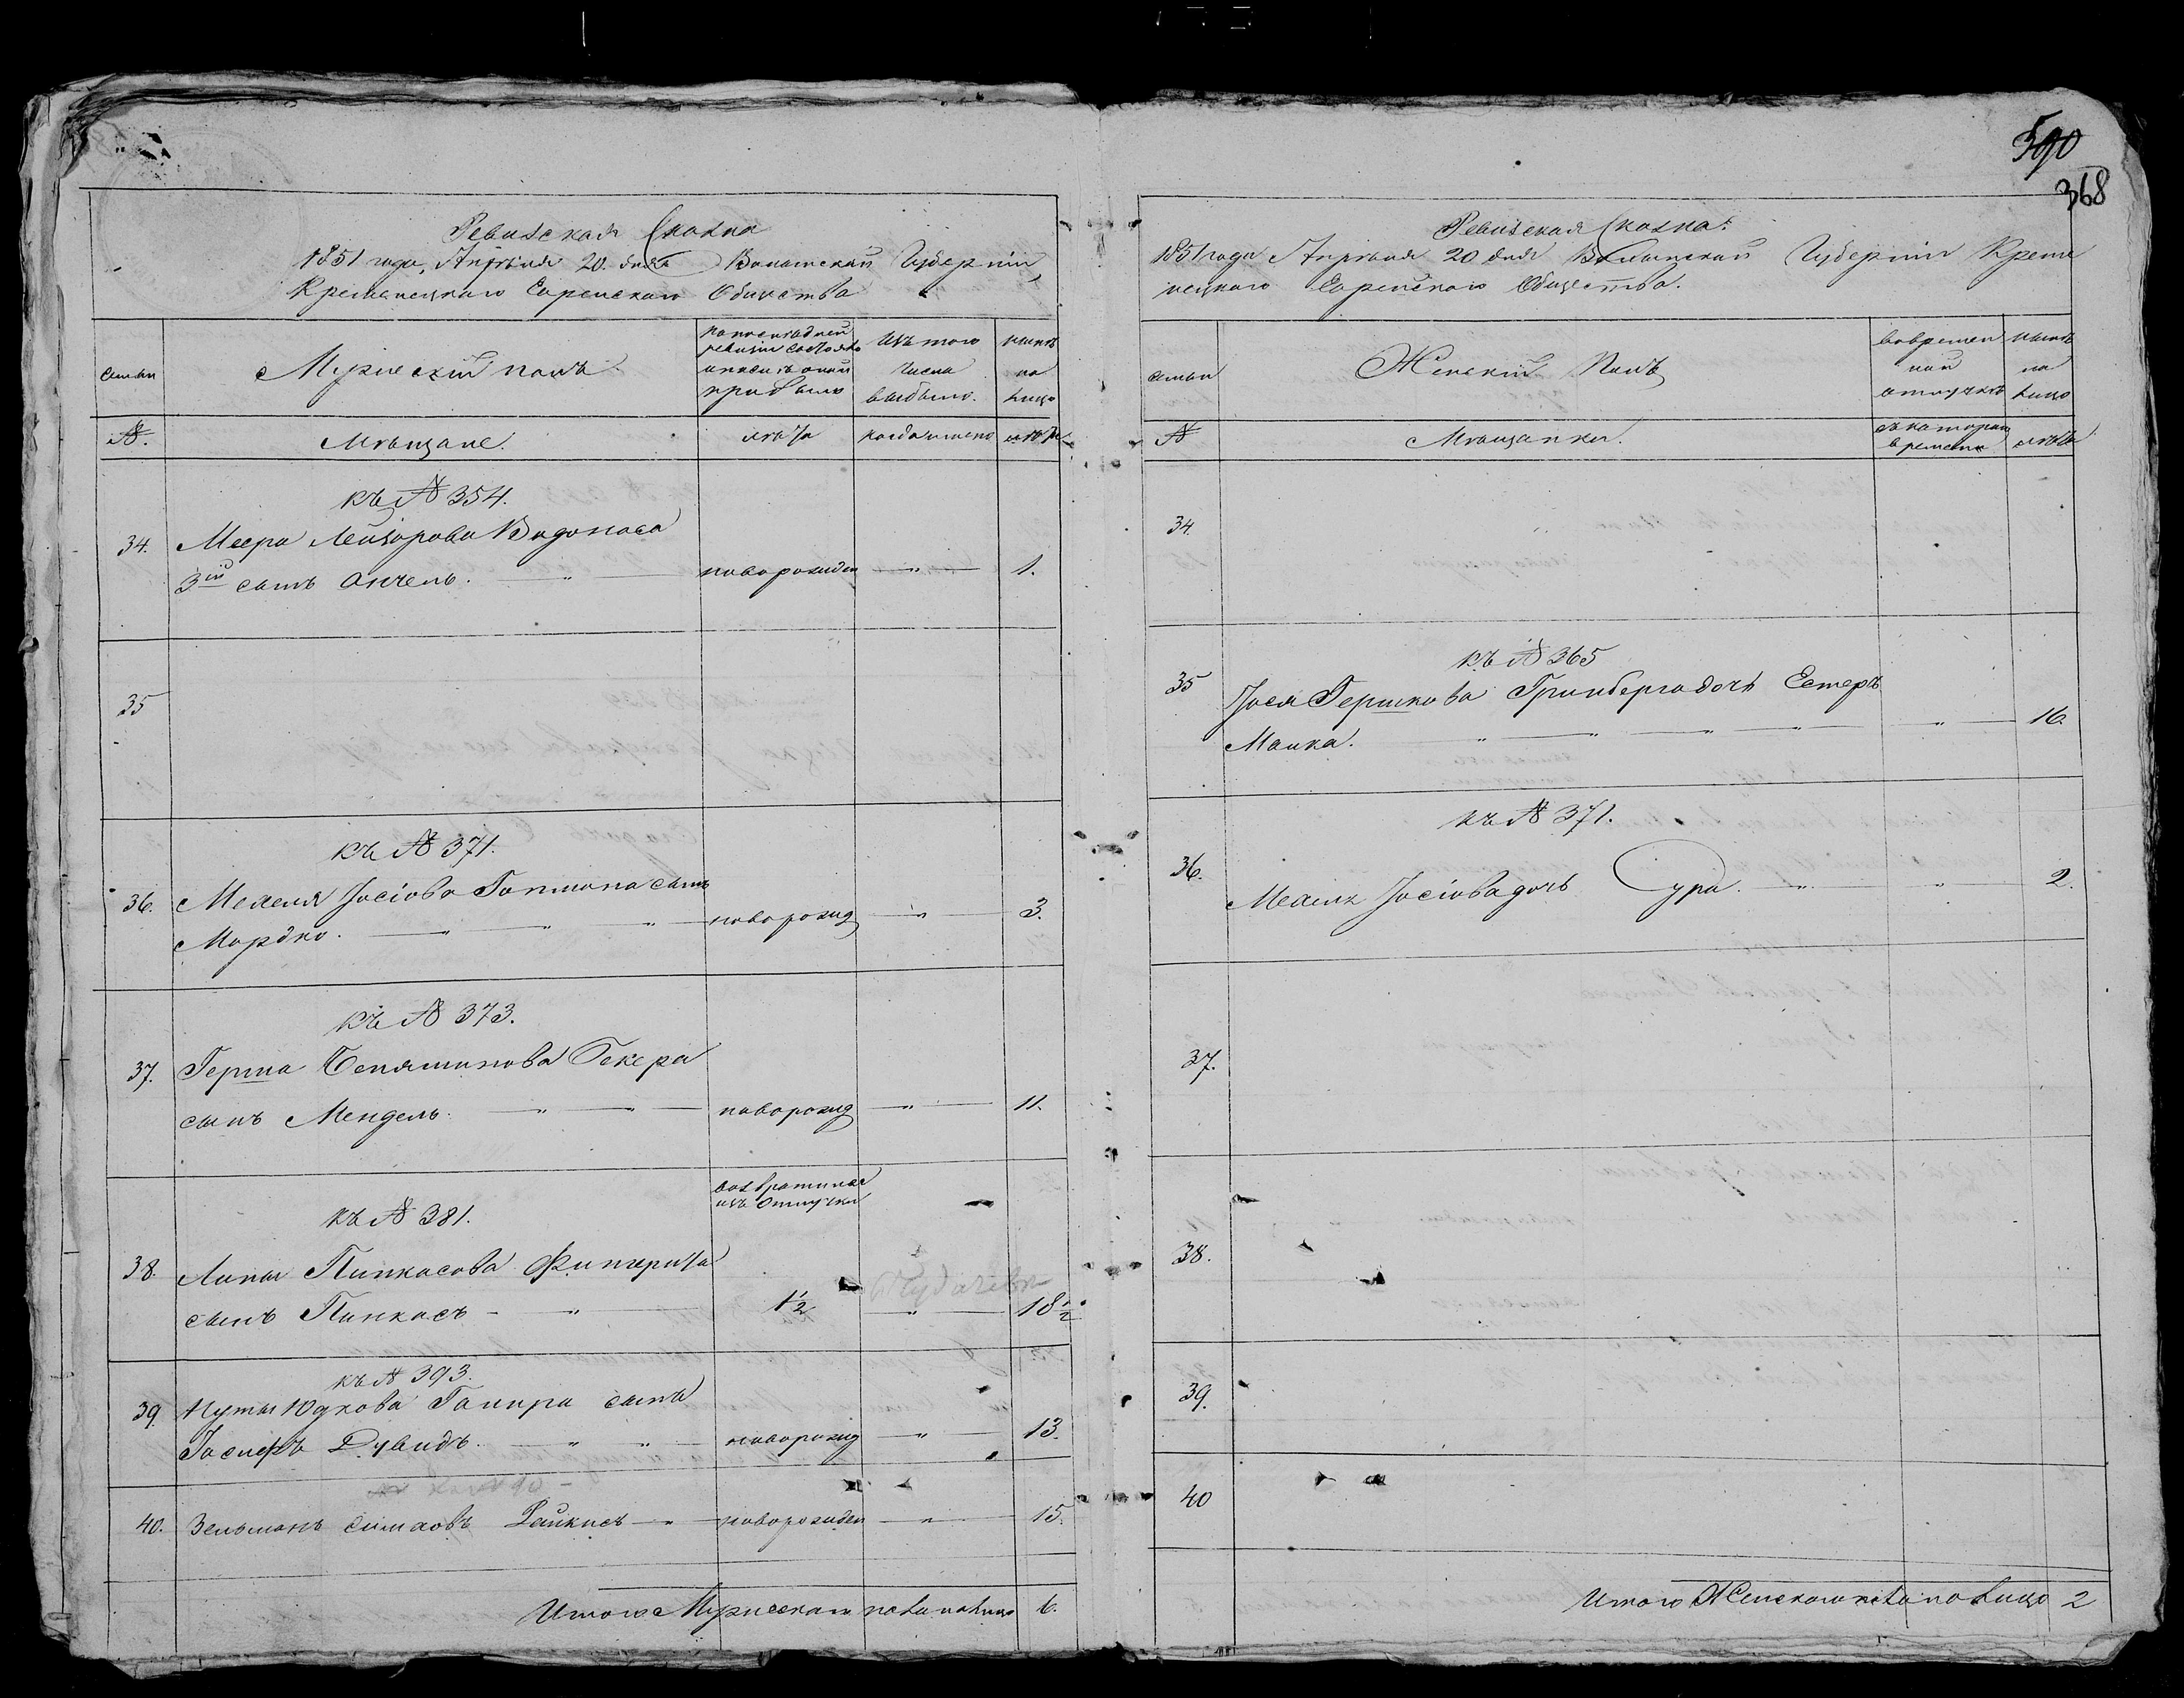 590
368
Ревизская Сказка
1851 года, Апрѣля 20. дня Волынской Губерніи
Кременецкаго Еврейскаго Общества
семьи
Мужескій полъ.
по послѣдней
ревизіи состояло
и послѣ оной
прибыло
Изъ того
числа
выбыло.
нынѣ
на
лицо
№.
Мѣщане.
лѣта
когда именно
лѣта
къ № 354.
34. Меера Лейзорова Водоноса
3й сынъ Анчель. " новорожден " 1.
35
къ № 371.
36. Мехеля Іосіова Гопмана сынъ
Мордко. " " " новорожд " 3.
къ № 373.
37. Герша Беняминова Секера
сынъ Мендель. " " новорожд " 11.
возвратился
изъ отлучки
къ № 381.
38. Липы Пинкасова Фингерута
сынъ Пинкасъ - " 1 1/2 " 18 1/2
къ № 393.
39. Нуты Юдкова Гапира сынъ
Іосифъ Дувидъ. " " новорожд " 13.
40. Зельманъ Симховъ Рейкисъ " новорожден " 15.
Итого Мужескаго пола на лицо 6.
Ревизская Сказка.
1851 года Апрѣля 20 дня Волынской Губерніи Креме
нецкаго Еврейскаго Общества.
семьи
Женскій Полъ
вовремен
ной
отлучкѣ
нынѣ
на
лицо
№
Мѣщанки.
съ котораго
времени
лѣта
34.
къ № 365
35 Іося Гершкова Гринберга дочь Естеръ
Малка. " " " " " 16.
къ № 371.
36. Мехеля Іосіова дочь Сура. " " 2.
37.
38.
39.
40
Итого Женскаго пола на лицо 2